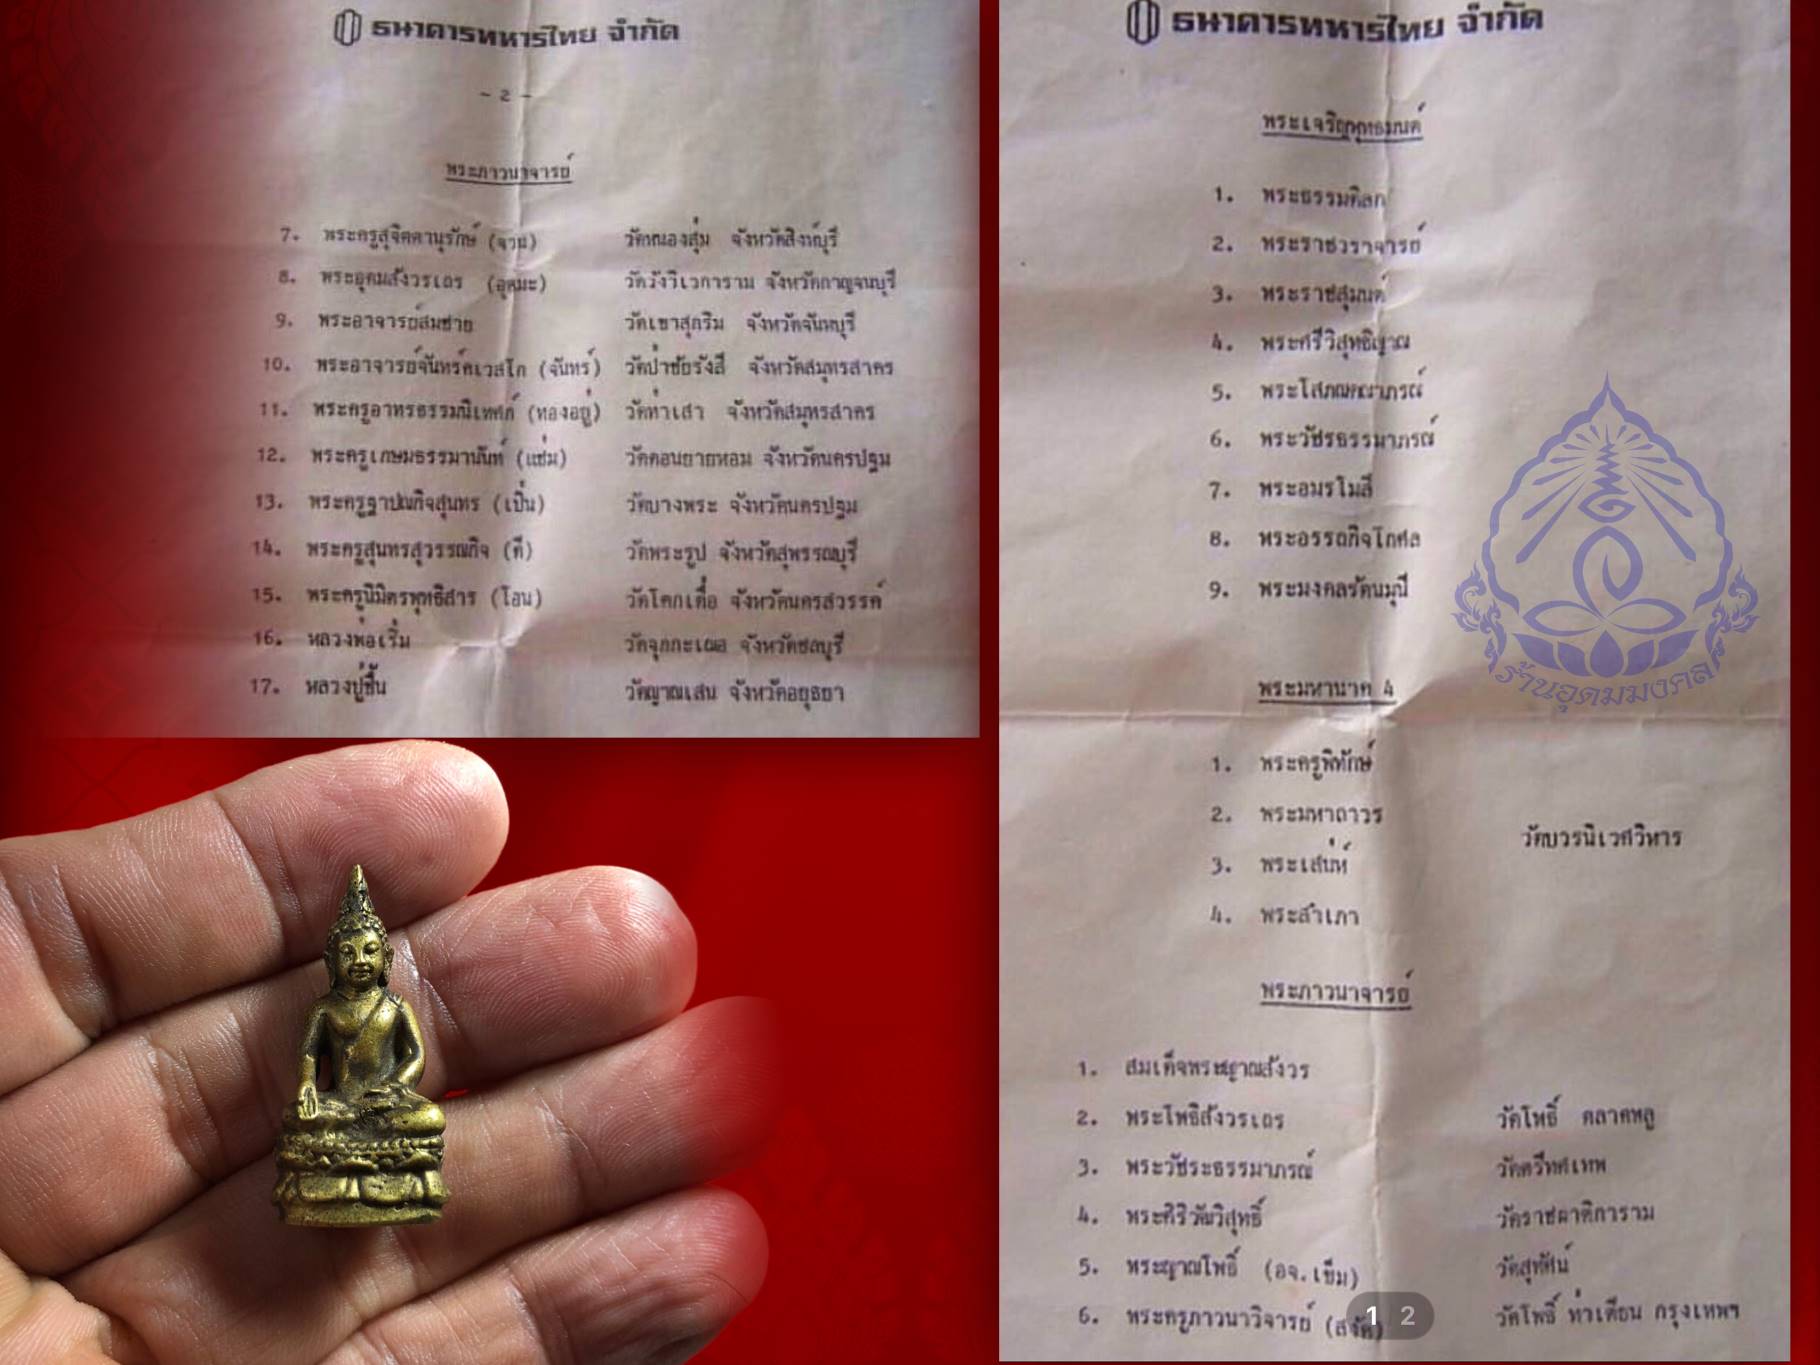 ธนาคารทหารไทย จำกัด
- 2 -
พระภาวนาจารย์
7. พระครูสุจิตตานุรักษ์ (จวน) วัดหนองสุ่ม จังหวัดสิงห์บุรี
8. พระอุดมสังวรเถร (อุตมะ) วัดวังวิเวการาม จังหวัดกาญจนบุรี
9. พระอาจารย์สมชาย วัดเขาสุกริม จังหวัดจันทบุรี
10. พระอาจารย์จันทร์คเวสโก (จันทร์) วัดป่าชัยรังสี จังหวัดสมุทรสาคร
11. พระครูอาทรธรรมนิเทศก์ (ทองอยู่) วัดท่าเสา จังหวัดสมุทรสาคร
12. พระครูเกษมธรรมานันท์ (แช่ม) วัดดอนยายหอม จังหวัดนครปฐม
13. พระครูฐาปนกิจสุนทร (เปิ่น) วัดบางพระ จังหวัดนครปฐม
14. พระครูสุนทรสุวรรณกิจ (ดี) วัดพระรูป จังหวัดสุพรรณบุรี
15. พระครูนิมิตรพุทธิสาร (โอน) วัดโคกเดื่อ จังหวัดนครสวรรค์
16. หลวงพ่อเริ่ม วัดจุกกะเฌอ จังหวัดชลบุรี
17. หลวงปู่ชื้น วัดญาณเสน จังหวัดอยุธยา
ธนาคารทหารไทย จำกัด
พระเจริญพุทธมนต์
1. พระธรรมดิลก
2. พระราชวราจารย์
3. พระราชสุมนต์
4. พระศรีวิสุทธิญาณ
5. พระโสภณคณาภรณ์
6. พระวัชรธรรมาภรณ์
7. พระอมรโมลี
8. พระอรรถกิจโกศล
9. พระมงคลรัตนมุนี
ร้านอุดมมงคล
พระมหานาค 4
1. พระครูพิทักษ์
2. พระมหาถาวร
วัดบวรนิเวศวิหาร
3. พระเสน่ห์
4. พระสำเภา
พระภาวนาจารย์
1. สมเด็จพระญาณสังวร
2. พระโพธิสังวรเถร วัดโพธิ์ ตลาดพลู
3. พระวัชระธรรมาภรณ์ วัดศรีทศเทพ
4. พระศิริวัฒวิสุทธิ์ วัดราชผาติการาม
5. พระญาณโพธิ์ (อจ.เข็ม) วัดสุทัศน์
6. พระครูภาวนาวิจารย์ (สงัด) วัดโพธิ์ ท่าเตียน กรุงเทพฯ
1 2